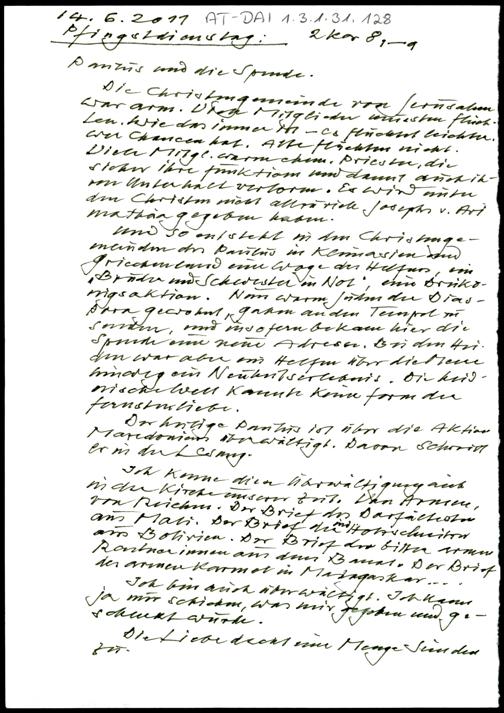 14.6.2011 AT-DAI 1.3.1.31.128
Pfingstdienstag: 2 Kor 8,1-9
Paulus und die Spende.
Die Christengemeinde von Jerusalem
war arm. Viele Mitglieder mussten flüch-
ten. Wie das immer ist - es flüchtet leichter,
wer Chancen hat. Alte flüchten nicht.
Viele Mitgl. waren ehem. Priester, die
sicher ihre Funktion und damit auch ih-
ren Unterhalt verloren. Es wird unter
den Christen nicht allzu viele Josephs v. Ari
mathäa gegeben haben.
Und so entsteht in den Christenge-
meinden des Paulus in Kleinasien und
Griechenland eine Woge des Helfens, ein
"Brüder und Schwester in Not", eine
aktion. Nun waren Juden der Dias-
pora gewohnt, Gaben an den Tempel zu
senden, und insofern bekam hier die
Spende eine neue Adresse. Bei den Hei-
den war aber ein Helfen über die Meere
hinweg ein. Die heid-
nische Welt kannte keine Form der
Fernstenliebe.
Der heilige Paulus ist über die Aktion
Mazedoniens überwältigt. Davon schreibt
er in der Lesung.
Ich kenne diese Überwältigung auch
in der Kirche unserer Zeit. Von Armen,
von Reichen. Der Brief des Dorfältesten
aus Mali. Der Brief der Hofschneider
aus Bolivien. Der Brief der bitter armen
Rentnerinnen aus dem Banat. Der Brief
des armen Karmel in Madagaskar....
Ich bin auch überwältigt. Ich kann
ja nur schicken, was mir gegeben und ge-
schenkt wurde.
Die Liebe deckt eine Menge Sünden
zu.